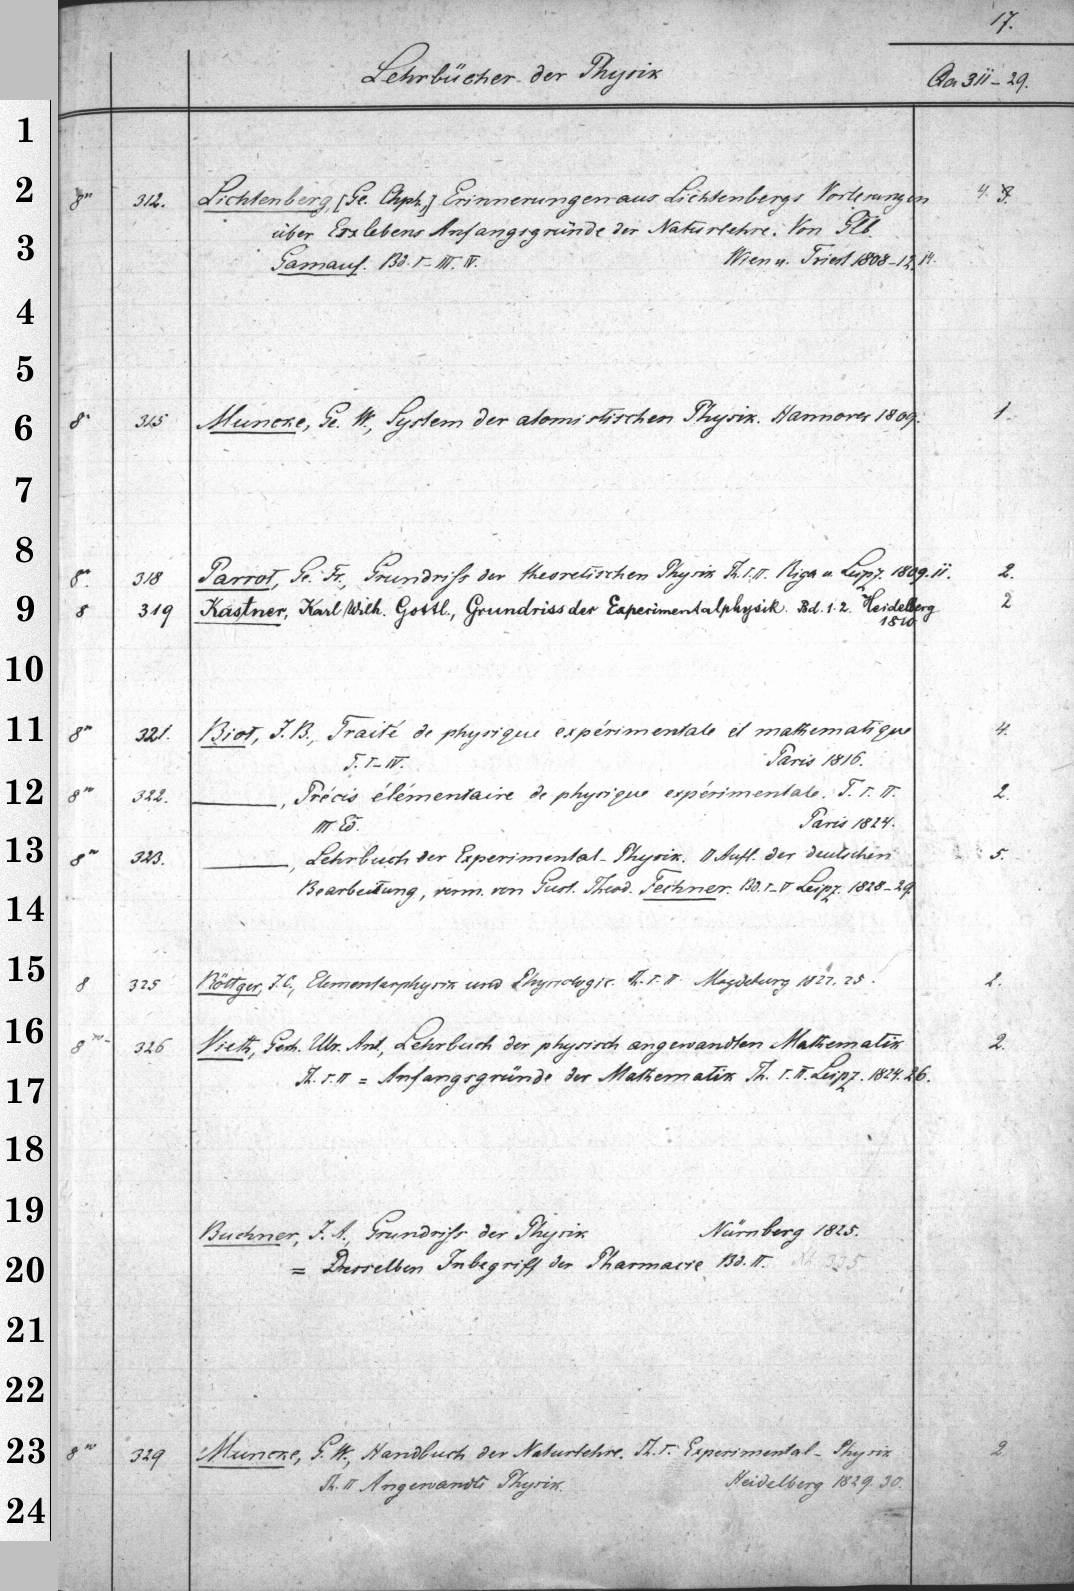 17.
Lehrbücher der Physik
Qa 311–29.
1
2
8º 312. Lichtenberg, [Ge. Chph.] Erinnerungen aus Lichtenbergs Vorlesungen 4. 3.
über Erxlebens Anfangsgründe der Naturlehre. Von Glb.
3
Gamauf. Bd. I–III. IV. Wien u. Triest 1808–12, 14.
4
5
6 8º 315 Muncke, Ge. W., System der atomistischen Physik. Hannover 1809. 1.
7
8
8º. 318 Parrot, Ge. Fr., Grundriss der theoretischen Physik Th. I. II. Riga u. Leipz. 1809. 11. 2.
9 8 319 Kastner, Karl Wilh. Gottl., Grundriss der Experimentalphysik. Bd. 1. 2. Heidelberg 2
1810
10
11 8º 321. Biot, J. B., Traité de physique expérimentale et mathematique 4.
T. I–IV. Paris 1816.
12 8º 322. ———, Précis élémentaire de physique expérimentale. T. I. II. 2.
III Ed. Paris 1824.
13 8º 323. ———, Lehrbuch der Experimental-Physik. II Aufl. der deutschen 5.
Bearbeitung, verm. von Gust. Theod. Fechner. Bd. I–V Leipz. 1828–29
14
15 8 325 Röttger, J. C., Elementarphysik und Physiologie. Th. I. II. Magdeburg 2.
16 8º 326 Vieth, Gerh. Ulr. Ant., Lehrbuch der physisch angewandten Mathematik 2.
17 Th. I. II = Anfangsgründe der Mathematik Th. I. II. Leipz. 1824. 26.
18
19
Buchner, J. A., Grundriss der Physik Nürnberg 1825.
20 = Desselben Inbegriff der Pharmacie Bd. II.
21
22
23 8º 329 Muncke, G. W., Handbuch der Naturlehre. Th. I. Experimental-Physik 2
Th. II Angewandte Physik. Heidelberg 1829. 30.
24